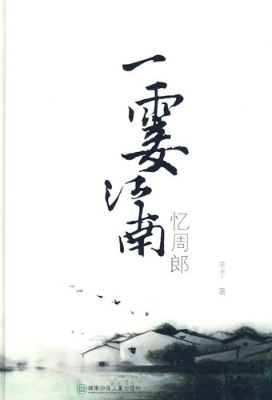 一霎江南
忆周郎
著
湖南少年儿童出版社